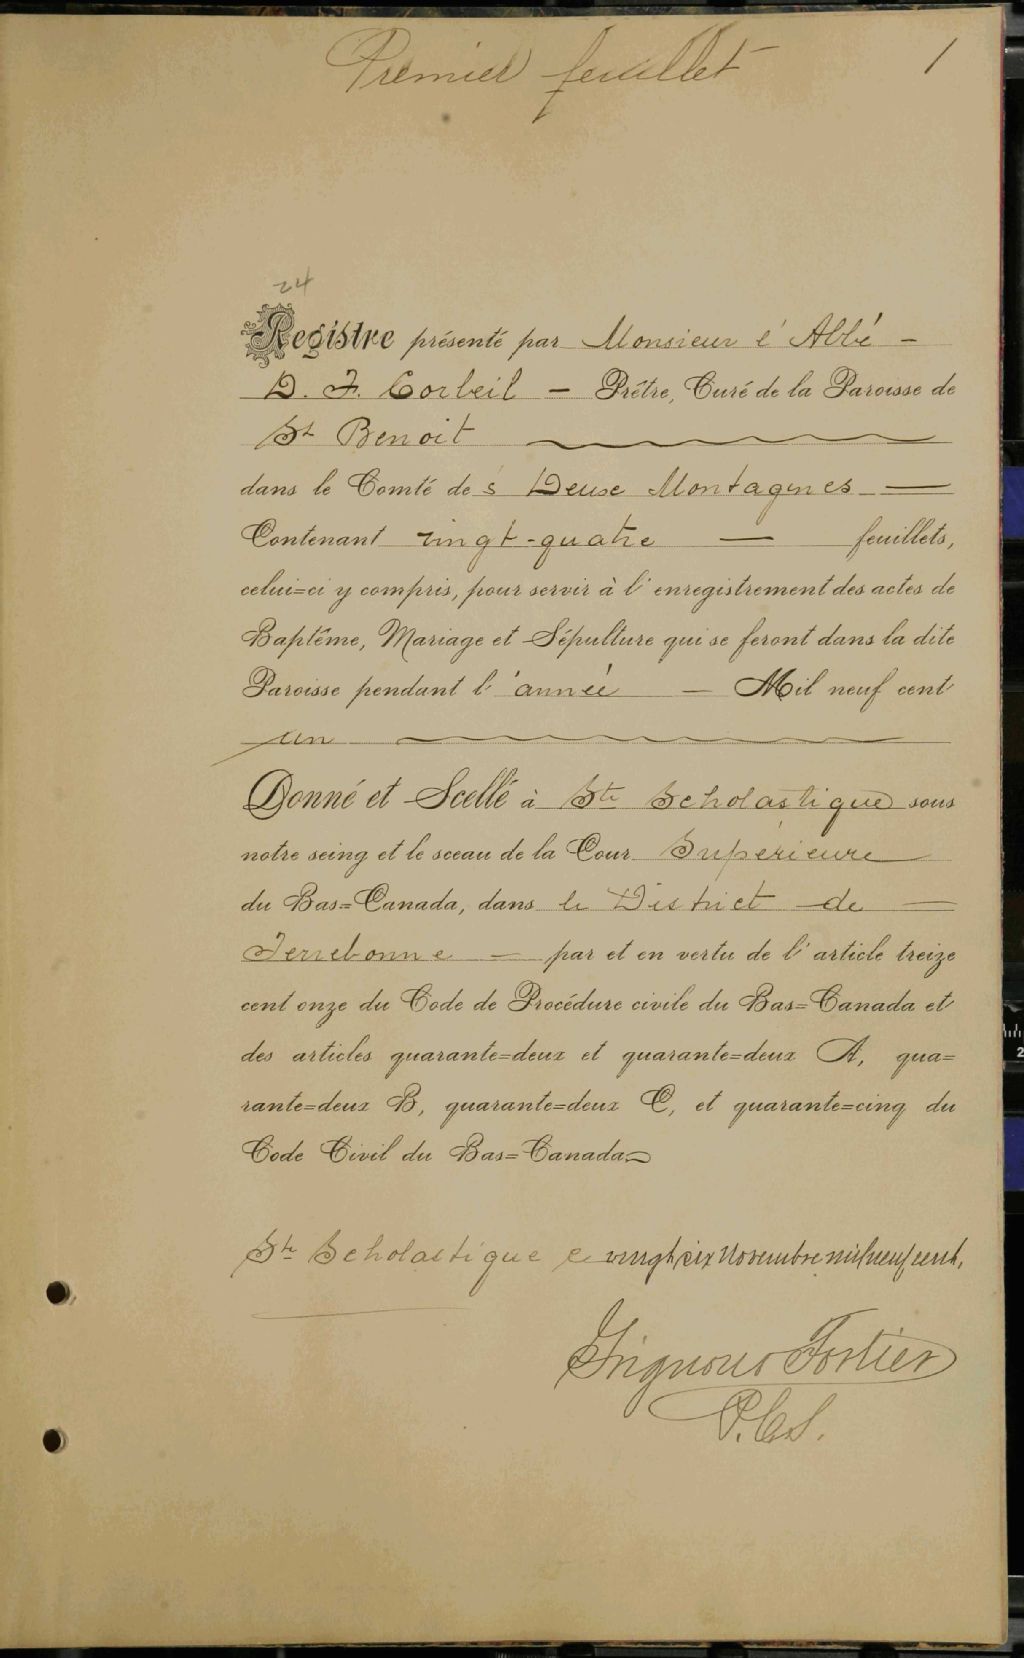 Premier feuillet 1
24
Registre présenté par Monsieur l'Abbé –
D. F. Corbeil – Prêtre, Curé de la Paroisse de
St Benoit
dans le Comté des Deux Montagnes —
Contenant vingt-quatre — feuillets,
celui=ci y compris, pour servir à l'enregistrement des actes de
Baptême, Mariage et Sépulture qui se feront dans la dite
Paroisse pendant l'année — Mil neuf cent
un
Donné et Scellé à Ste Scholastique sous
notre seing et le sceau de la Cour Supérieure
du Bas=Canada, dans le District de —
Terrebonne — par et en vertu de l'article treize
cent onze du Code de Procédure civile du Bas=Canada et
des articles quarante=deux et quarante=deux A, qua=
rante=deux B, quarante=deux C, et quarante=cinq du
Code Civil du Bas=Canada.
Ste Scholastique ce vingt six Novembre mil neuf cent.
Grignon & Fortier
P.C.S.
2